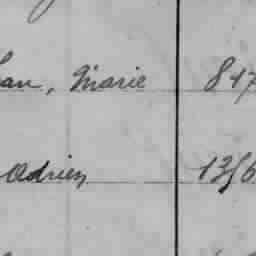 an, Marie 847
Adrien 1356